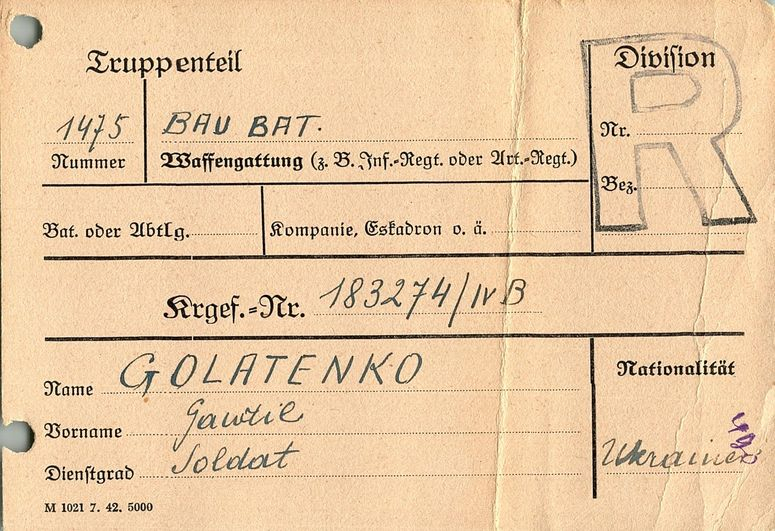 Truppenteil
Division
R
1475
BAU BAT.
Nummer
Waffengattung (z. B. Inf.-Regt. oder Art.-Regt.)
Nr.
Bez.
Bat. oder Abtlg.
Kompanie, Eskadron o. ä.
Krgef.-Nr. 183274/IV B
Name GOLATENKO
Nationalität
Vorname Gawril
Dienstgrad Soldat
Ukrainer
M 1021 7. 42. 5000